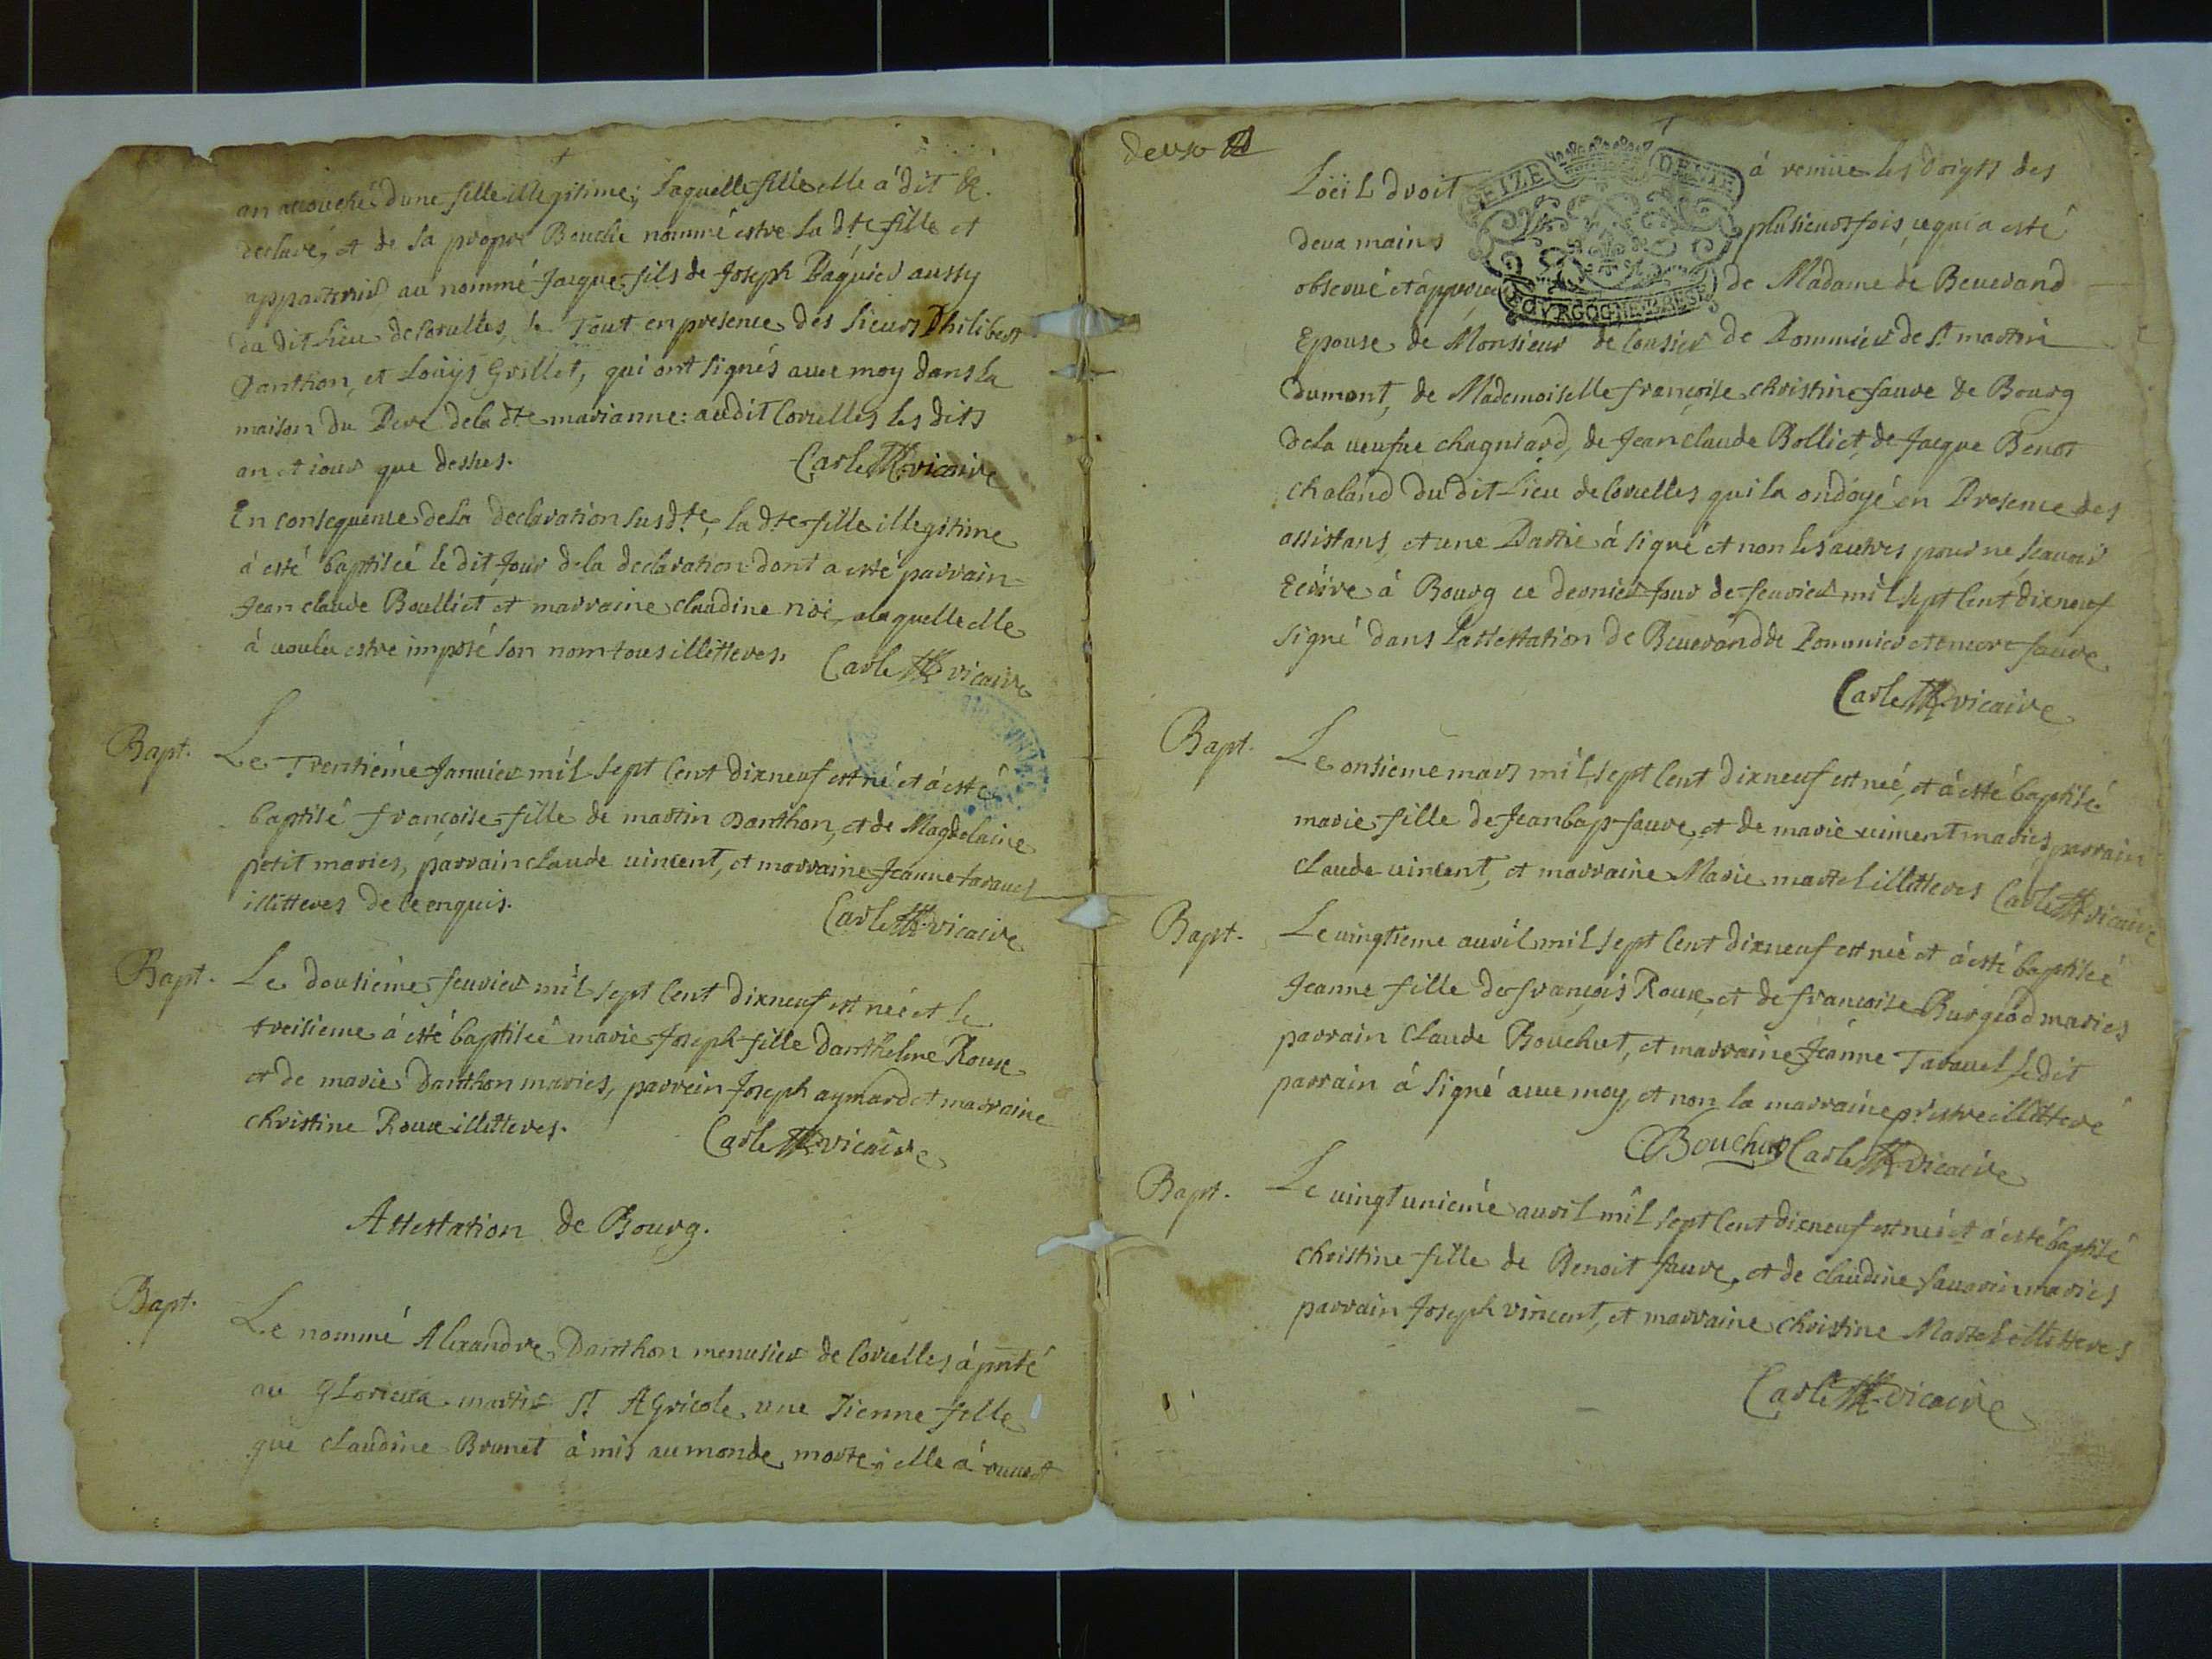 an accouché dune fille illegitime; Laquelle fille elle à dit &
declaré, et de sa propre Bouche nommé estre la dte fille et
appartenir au nommé Jacque fils de Joseph Paquier aussy
du dit Lieu de Corcelles, le Tout en presence des sieurs Philibert
Danthon, et Loüys Grillet, qui ont signés avec moy dans la
maison du Pere de la dte marianne: audit Corcelles les dits
an et iour que dessus.
Carle vicaire
En consequence de La declaration susdte, la dte fille illegitime
à esté baptiseé le dit Jour de la declaration dont a esté parrain
Jean claude Boulliet et marraine claudine roi, a laquelle elle
à voulu estre imposé son nom tous illitteres.
Carle vicaire
Bapt.
Le Trentiéme Janvier mil sept Cent dixneuf est né et à esté
baptisé françoise fille de martin Danthon, et de Magdelaine
petit maries, parrain claude vincent, et marraine Jeanne taravel
illitteres de ce enquis.
Carle vicaire
Bapt.
Le dousiéme fevrier mil sept Cent dixneuf est née et le
treisieme à esté baptiseé marie Joseph fille Danthelme Roux
et de marie danthon maries, parrein Joseph aymard et marraine
christine Roux illitteres.
Carle vicaire
Attestation de Bourg.
Bapt.
Le nommé Alexandre Danthon menusier de Corcelles à pnté
au glorieux martir St Agricole une sienne fille
que claudine Brunet à mis au monde morte; elle à ouvert
deux
Loëil droit à remüe les doigts des
deux mains plusieurs fois, ce qui a esté
observé et de Madame de Beverand
Epouse de Monsieur de Cousier de Pommier de St martin
Dumont, de Mademoiselle françoise christine favre de Bourg
de la veufve chagniard, de Jean claude Bolliet, de Jacque Benot
chaland du dit Lieu de Corcelles qui la ondoyé en Presence des
assistans, et une Partie à signé et non les autres pour ne scavoir
Ecrire à Bourg ce dernier Jour de fevrier mil sept Cent dixneuf
signé dans Lattestation de Beverand de Pommier et encore favre
Carle vicaire
Bapt.
Le onsieme mars mil sept Cent dixneuf est née, et à esté baptiseé
marie fille de Jean bap favre, et de marie vincent maries, parrain
claude vincent, et marraine Marie martel illitteres Carle vicaire
Bapt.
Le vingtieme avril mil sept Cent dixneuf est née et à esté baptiseé
Jeanne fille de françois Roux, et de francoise Burgiod maries
parrain Claude Bouchut, et marraine Jeanne Taravel le dit
parrain à signé avec moy, et non la marraine pr estre illitteré
Bouchut Carle vicaire
Bapt.
Le vingt unieme avril mil sept Cent dixneuf est née et à esté baptisé
christine fille de Benoit favre, et de claudine savarin maries
parrain Joseph vincent, et marraine christine Martel illitteres
Carle vicaire